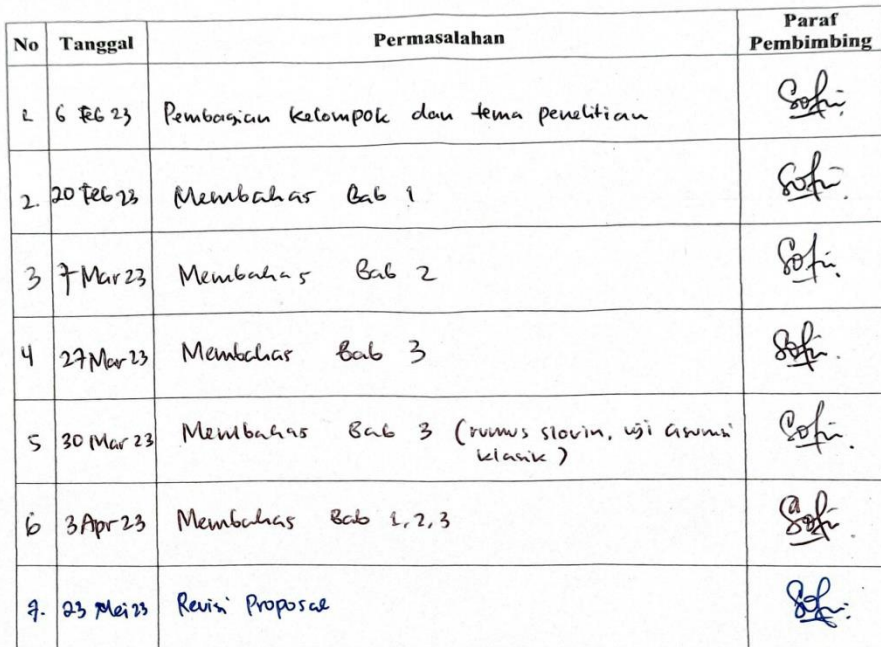 No Tanggal Permasalahan Paraf Pembimbing
1. 6 Feb 23 Pembagian kelompok dan tema penelitian Sofi
2. 20 Feb 23 Membahas Bab 1 Sofi
3 7 Mar 23 Membahas Bab 2 Sofi
4 27 Mar 23 Membahas Bab 3 Sofi
5 30 Mar 23 Membahas Bab 3 (rumus slovin, uji asumsi
klasik)
6 3 Apr 23 Membahas Bab 1, 2, 3
7. 23 Mei 23 Revisi Proposal